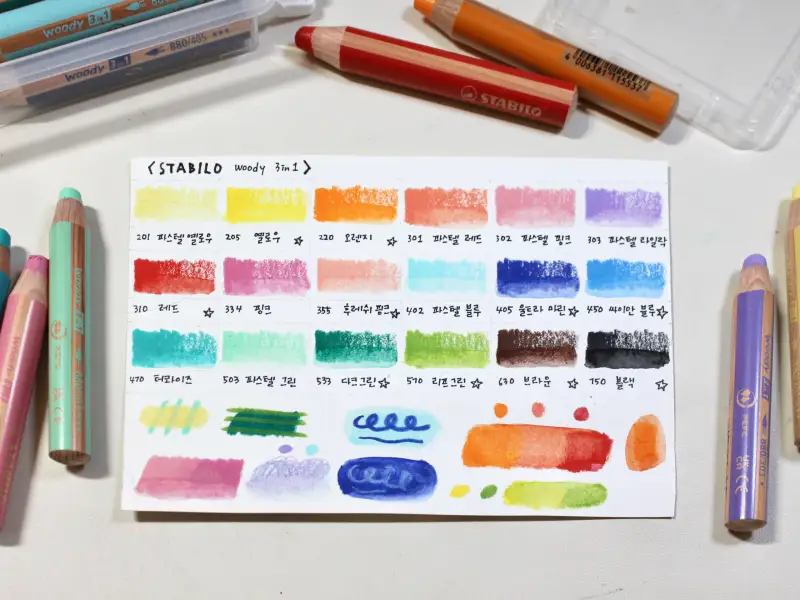 woody 3in1 880/
woody 3in1 880/405 ***
STABILO
4 006381 115537
< STABILO woody 3in1 >
201 파스텔옐로우 205 옐로우 ☆ 220 오렌지 ☆ 301 파스텔 레드 302 파스텔 핑크 303 파스텔 라일락
310 레드 ☆ 334 핑크 355 후레쉬 핑크☆ 402 파스텔 블루 405 울트라 마린☆ 450 싸이안 블루☆
470 터콰이즈 503 파스텔 그린 533 다크그린☆ 570 리프그린☆ 630 브라운 ☆ 750 블랙 ☆